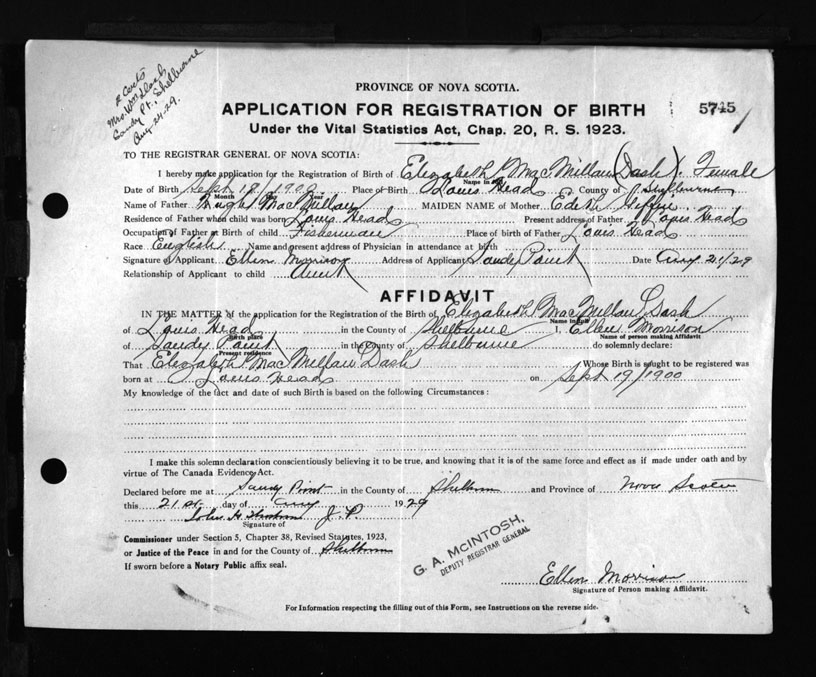 2 Certs
Mrs. Wm Dash
Sandy Pt. Shelburne
Aug-24-29.
PROVINCE OF NOVA SCOTIA.
APPLICATION FOR REGISTRATION OF BIRTH
5745
Under the Vital Statistics Act, Chap. 20, R. S. 1923.
TO THE REGISTRAR GENERAL OF NOVA SCOTIA:
I hereby make application for the Registration of Birth of Elizabeth MacMillan (Dash). Female
Name in full
Date of Birth Sept 19/1900 Place of Birth Louis Head County of Shelburne
Month
Name of Father Hugh MacMillan MAIDEN NAME of Mother Edith
Residence of Father when child was born Louis Head Present address of Father Louis Head
Occupation of Father at Birth of child Fisherman Place of birth of Father Louis Head
Race English Name and present address of Physician in attendance at birth
Signature of Applicant Ellen Morrison Address of Applicant Sandy Point Date Aug 21/29
Relationship of Applicant to child Aunt
AFFIDAVIT
IN THE MATTER of the application for the Registration of Birth of Elizabeth MacMillan Dash
Name in full
of Louis Head in the County of Shelburne I, Ellen Morrison
Birth place Name of person making Affidavit
of Sandy Point in the County of Shelburne do solemnly declare:
Present residence
That Elizabeth MacMillan Dash Whose Birth is sought to be registered was
born at Louis Head on Sept 19/1900
My knowledge of the fact and date of such Birth is based on the following Circumstances:
I make this solemn declaration conscientiously believing it to be true, and knowing that it is of the same force and effect as if made under oath and by
virtue of The Canada Evidence Act.
Declared before me at Sandy Point in the County of Shelburne and Province of Nova Scotia
this 21st day of Aug 1929
John H. J. P.
Signature of
Commissioner under Section 5, Chapter 38, Revised Statutes, 1923,
or Justice of the Peace in and for the County of Shelburne
If sworn before a Notary Public affix seal.
G. A. McINTOSH,
DEPUTY REGISTRAR GENERAL
Ellen Morrison
Signature of Person making Affidavit.
For Information respecting the filling out of this Form, see Instructions on the reverse side.